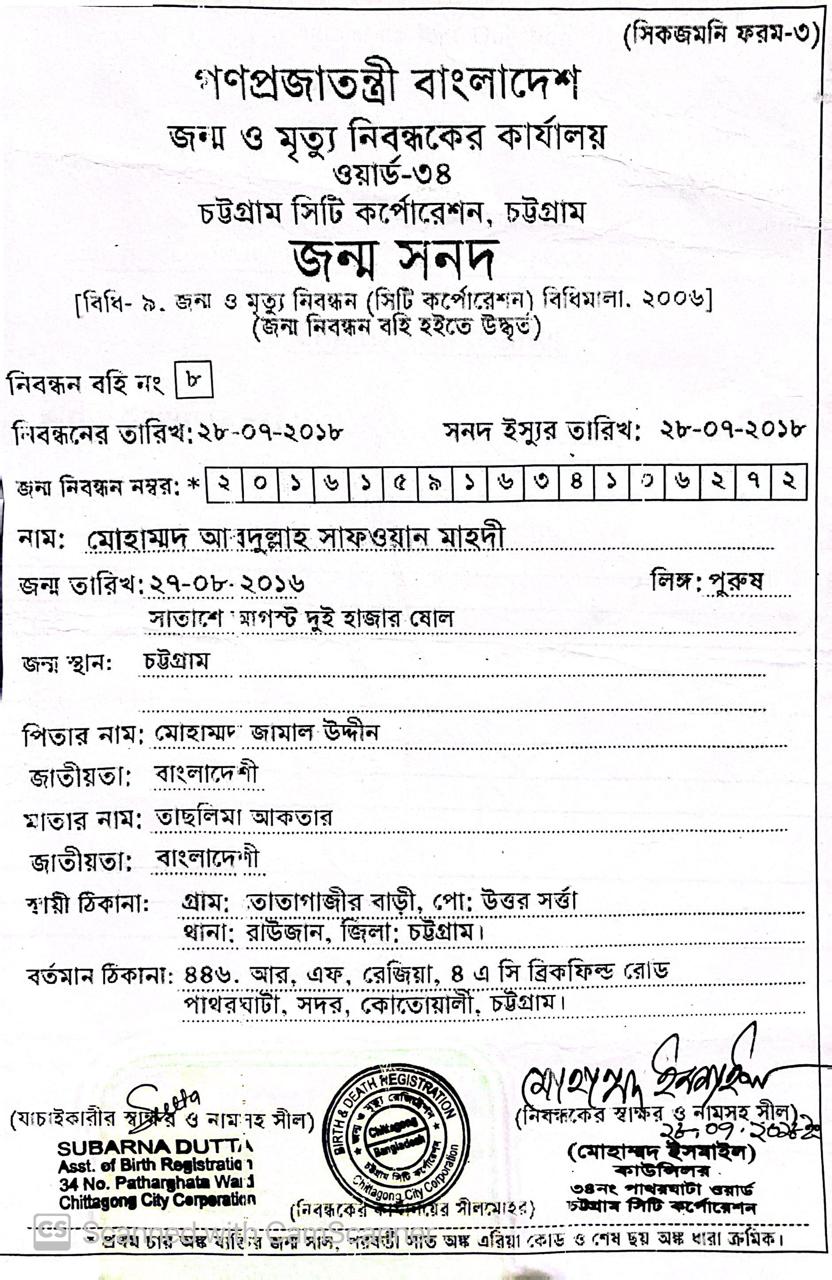 (সিকজমনি ফরম-৩)
গণপ্রজাতন্ত্রী বাংলাদেশ
জন্ম ও মৃত্যু নিবন্ধকের কার্যালয়
ওয়ার্ড-৩৪
চট্টগ্রাম সিটি কর্পোরেশন, চট্টগ্রাম
জন্ম সনদ
[বিধি- ৯. জন্ম ও মৃত্যু নিবন্ধন (সিটি কর্পোরেশন) বিধিমালা. ২০০৬]
(জন্ম নিবন্ধন বহি হইতে উদ্ধৃত)
নিবন্ধন বহি নং ৮
নিবন্ধনের তারিখ: ২৮-০৭-২০১৮ সনদ ইস্যুর তারিখ: ২৮-০৭-২০১৮
জন্ম নিবন্ধন নম্বর: * ২ ০ ১ ৬ ১ ৫ ৯ ১ ৬ ৩ ৪ ১ ০ ৬ ২ ৭ ২
নাম: মোহাম্মদ আবদুল্লাহ সাফওয়ান মাহদী
জন্ম তারিখ: ২৭-০৮-২০১৬ লিঙ্গ: পুরুষ
সাতাশে আগস্ট দুই হাজার ষোল
জন্ম স্থান: চট্টগ্রাম
পিতার নাম: মোহাম্মদ জামাল উদ্দীন
জাতীয়তা: বাংলাদেশী
মাতার নাম: তাছলিমা আকতার
জাতীয়তা: বাংলাদেশী
স্থায়ী ঠিকানা: গ্রাম: তাতাগাজীর বাড়ী, পো: উত্তর সর্ত্তা
থানা: রাউজান, জিলা: চট্টগ্রাম।
বর্তমান ঠিকানা: ৪৪৬. আর, এফ, রেজিয়া, ৪ এ সি ব্রিকফিল্ড রোড
পাথরঘাটা, সদর, কোতোয়ালী, চট্টগ্রাম।
মোহাম্মদ ইসমাইল
(যাচাইকারীর স্বাক্ষর ও নামসহ সীল)
SUBARNA DUTTA
Asst. of Birth Registration
34 No. Patharghata Ward
Chittagong City Corporation
BIRTH & DEATH REGISTRATION
জন্ম ও মৃত্যু রেজিস্ট্রেশন
Chittagong
Bangladesh
চট্টগ্রাম সিটি কর্পোরেশন
Chittagong City Corporation
(নিবন্ধকের কার্যালয়ের সীলমোহর)
(নিবন্ধকের স্বাক্ষর ও নামসহ সীল)
(মোহাম্মদ ইসমাইল)
কাউন্সিলর
৩৪নং পাথরঘাটা ওয়ার্ড
চট্টগ্রাম সিটি কর্পোরেশন
CS Scanned with CamScanner
* প্রথম চার অঙ্ক ব্যক্তির জন্ম সাল, পরবর্তী সাত অঙ্ক এরিয়া কোড ও শেষ ছয় অঙ্ক ধারা ক্রমিক।